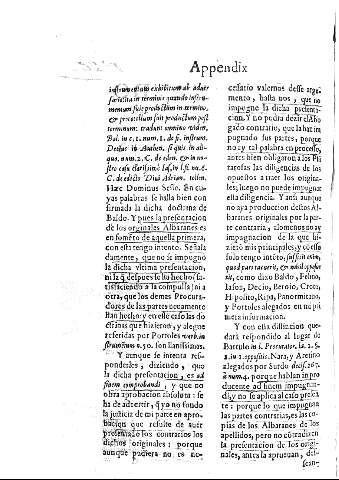 Appendix
instrumentum exhibitum ab aduer
sario sit in terminis quando instru-
mentum fuit productum in termino,
& protestatum fuit productum post
terminum: tradunt omnino
Bal. in c. 1. num. 1. de fi. instrum.
Decius in Authen. si quis in ali-
quo, num. 2. C. de eden. & in no-
stro casu clarissimè Ias. in l. si
C. de edicto Diui Adrian. tollen.
Hæc Dominus Sesse. En cu-
yas palabras se halla bien con
firmada la dicha doctrina de
Baldo. Y pues la presentacion
de los orginales Albaranes es
en fomẽto de aquella primera,
con esta tengo intento. Seña la
damente, que no se impugnò
la dicha vltima presentacion,
ni la q̃ despues se ha hecho sa-
tisfaciendo à la compulsa ni a
otra, que los demas Procura-
dores de las partes notamente
han hecho: y en este caso las do
ctrinas que hizieron, y alegue
referidas por Portoles verb. in
strumentum n. 50. son llanissimas.
Y aunque se intenta res-
ponderles, diziendo, que
la dicha presentacion, es ad
finem comprobandi, y que no
obra aprobacion absoluta: se
ha de aduertir, q̃ yo no fundo
la justicia de mi parte en apro-
bacion que resulte de auer
presentado los contrarios los
dichos originales: porque
aunque pudiera no es ne-
cessario valernos desse argu-
mento, basta nos, que no
impugne la dicha presenta-
cion. Y no pudra dezir el Abo
gado contrario, que la ha im
pugnado sus partes, porque
no ay tal palabra en processo,
antes bien obligaron a los Pri
tarasias las diligencias de los
opuestos a traer los origina-
les; luego no puede impugnar
esta diligencia. Y assi aunque
no aya produccion destos Al-
baranes originales por la par-
te contraria, alomenos no ay
impugnacion de la que hi-
zierõ mis principales, y con es
solo tengo intẽto, sufficit enim,
quod pars tacuerit, & nihil opposue
rit, como dizo Baldo, Felino,
Iason, Decio, Beroio, Croto,
Hipolito, Ripa, Panormitano,
y Portoles alegados en mi pri
mera informacion.
Y con esta distincion que-
darà respondido al lugar de
Bartulo in l. Procurator, la 2. §.
1. in 2. opposit. Nara, y Aretino
alegados por Surdo deci. 267.
num. 4. porque hablan in pro
ducente ad finem impugnan-
di, y no se aplica al caso presen
te: porque lo que impugnan
las partes contrarias, es las co-
pias de los Albaranes de los
apellidos, pero no cõtradizen
la presentacion de los origi-
nales, antes la aprueuan, des-
sean-